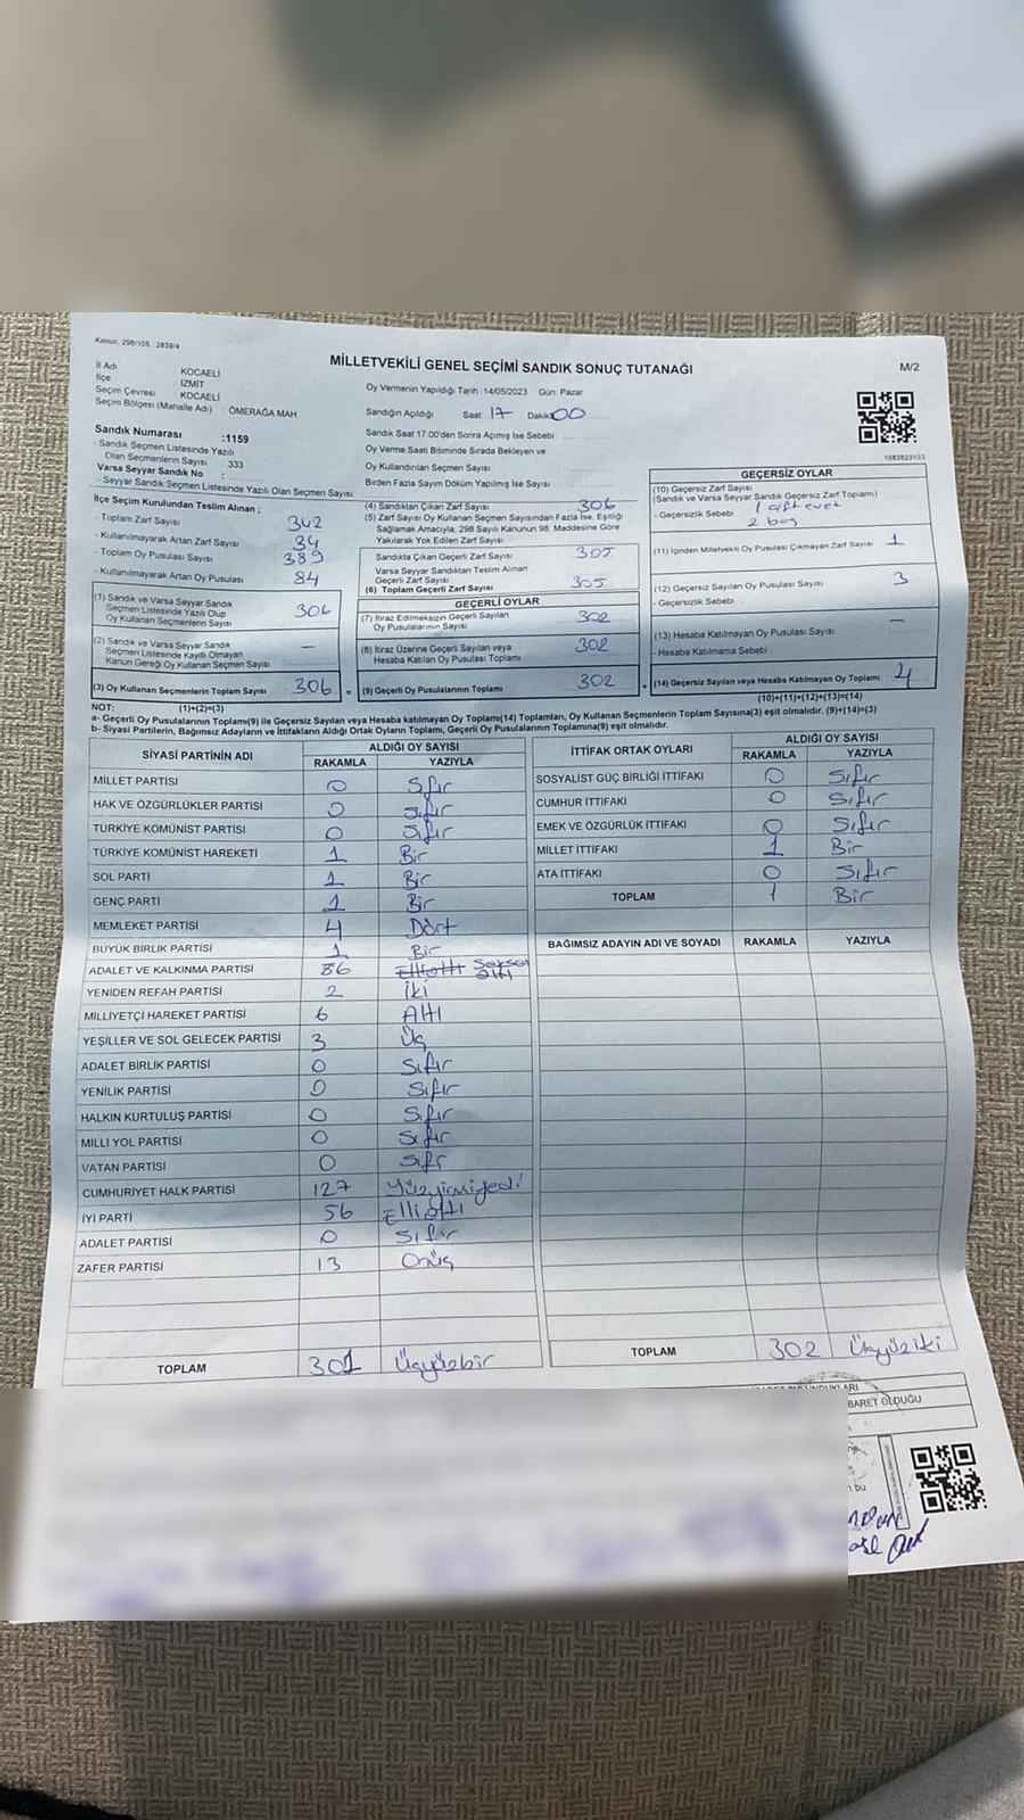 Kanun: 298/105, 2839/4
MİLLETVEKİLİ GENEL SEÇİMİ SANDIK SONUÇ TUTANAĞI
M/2
İl Adı KOCAELİ
İlçe İZMİT
Seçim Çevresi KOCAELİ
Seçim Bölgesi (Mahalle Adı) ÖMERAĞA MAH
Sandık Numarası :1159
- Sandık Seçmen Listesinde Yazılı
Olan Seçmenlerin Sayısı : 333
Varsa Seyyar Sandık No :
- Seyyar Sandık Seçmen Listesinde Yazılı Olan Seçmen Sayısı
Oy Vermenin Yapıldığı Tarih :14/05/2023 Gün: Pazar
Sandığın Açıldığı Saat: 17 Dakika 00
Sandık Saat 17.00'den Sonra Açılmış İse Sebebi
Oy Verme Saati Bitiminde Sırada Bekleyen ve
Oy Kullandırılan Seçmen Sayısı
Birden Fazla Sayım Döküm Yapılmış İse Sayısı
İlçe Seçim Kurulundan Teslim Alınan ;
Toplam Zarf Sayısı 342
- Kullanılmayarak Artan Zarf Sayısı 34
- Toplam Oy Pusulası Sayısı 389
- Kullanılmayarak Artan Oy Pusulası 84
(1) Sandık ve Varsa Seyyar Sandık
Seçmen Listesinde Yazılı Olup
Oy Kullanan Seçmenlerin Sayısı 306
(2) Sandık ve Varsa Seyyar Sandık
Seçmen Listesinde Kayıtlı Olmayan
Kanun Gereği Oy Kullanan Seçmen Sayısı —
(3) Oy Kullanan Seçmenlerin Toplam Sayısı 306
(1)+(2)=(3)
(4) Sandıktan Çıkan Zarf Sayısı 306
(5) Zarf Sayısı Oy Kullanan Seçmen Sayısından Fazla İse, Eşitliği
Sağlamak Amacıyla, 298 Sayılı Kanunun 98. Maddesine Göre
Yakılarak Yok Edilen Zarf Sayısı
Sandıkta Çıkan Geçerli Zarf Sayısı 305
Varsa Seyyar Sandıktan Teslim Alınan
Geçerli Zarf Sayısı
(6) Toplam Geçerli Zarf Sayısı 305
GEÇERLİ OYLAR
(7) İtiraz Edilmeksizin Geçerli Sayılan
Oy Pusulalarının Sayısı 302
(8) İtiraz Üzerine Geçerli Sayılan veya
Hesaba Katılan Oy Pusulası Toplamı 302
= (9) Geçerli Oy Pusulalarının Toplamı 302
GEÇERSİZ OYLAR
(10) Geçersiz Zarf Sayısı
(Sandık ve Varsa Seyyar Sandık Geçersiz Zarf Toplamı)
- Geçersizlik Sebebi 1 çift evet
2 boş
(11) İçinden Milletvekili Oy Pusulası Çıkmayan Zarf Sayısı 1
(12) Geçersiz Sayılan Oy Pusulası Sayısı 3
- Geçersizlik Sebebi
(13) Hesaba Katılmayan Oy Pusulası Sayısı —
- Hesaba Katılmama Sebebi
+ (14) Geçersiz Sayılan veya Hesaba Katılmayan Oy Toplamı 4
(10)+(11)+(12)+(13)=(14)
NOT:
a- Geçerli Oy Pusulalarının Toplamı(9) ile Geçersiz Sayılan veya Hesaba katılmayan Oy Toplamı(14) Toplamları, Oy Kullanan Seçmenlerin Toplam Sayısına(3) eşit olmalıdır. (9)+(14)=(3)
b- Siyasi Partilerin, Bağımsız Adayların ve İttifakların Aldığı Ortak Oyların Toplamı, Geçerli Oy Pusulalarının Toplamına(9) eşit olmalıdır.
SİYASİ PARTİNİN ADI ALDIĞI OY SAYISI
RAKAMLA YAZIYLA
MİLLET PARTİSİ 0 Sıfır
HAK VE ÖZGÜRLÜKLER PARTİSİ 0 Sıfır
TÜRKİYE KOMÜNİST PARTİSİ 0 Sıfır
TÜRKİYE KOMÜNİST HAREKETİ 1 Bir
SOL PARTİ 1 Bir
GENÇ PARTİ 1 Bir
MEMLEKET PARTİSİ 4 Dört
BÜYÜK BİRLİK PARTİSİ 1 Bir
ADALET VE KALKINMA PARTİSİ 86 Elli altı Seksen altı
YENİDEN REFAH PARTİSİ 2 İki
MİLLİYETÇİ HAREKET PARTİSİ 6 Altı
YEŞİLLER VE SOL GELECEK PARTİSİ 3 Üç
ADALET BİRLİK PARTİSİ 0 Sıfır
YENİLİK PARTİSİ 0 Sıfır
HALKIN KURTULUŞ PARTİSİ 0 Sıfır
MİLLİ YOL PARTİSİ 0 Sıfır
VATAN PARTİSİ 0 Sıfır
CUMHURİYET HALK PARTİSİ 127 Yüzyirmiyedi
İYİ PARTİ 56 Elli altı
ADALET PARTİSİ 0 Sıfır
ZAFER PARTİSİ 13 Onüç
TOPLAM 301 Üçyüzbir
İTTİFAK ORTAK OYLARI ALDIĞI OY SAYISI
RAKAMLA YAZIYLA
SOSYALİST GÜÇ BİRLİĞİ İTTİFAKI 0 Sıfır
CUMHUR İTTİFAKI 0 Sıfır
EMEK VE ÖZGÜRLÜK İTTİFAKI 0 Sıfır
MİLLET İTTİFAKI 1 Bir
ATA İTTİFAKI 0 Sıfır
TOPLAM 1 Bir
BAĞIMSIZ ADAYIN ADI VE SOYADI RAKAMLA YAZIYLA
TOPLAM 302 Üçyüziki
BARET OLDUĞU